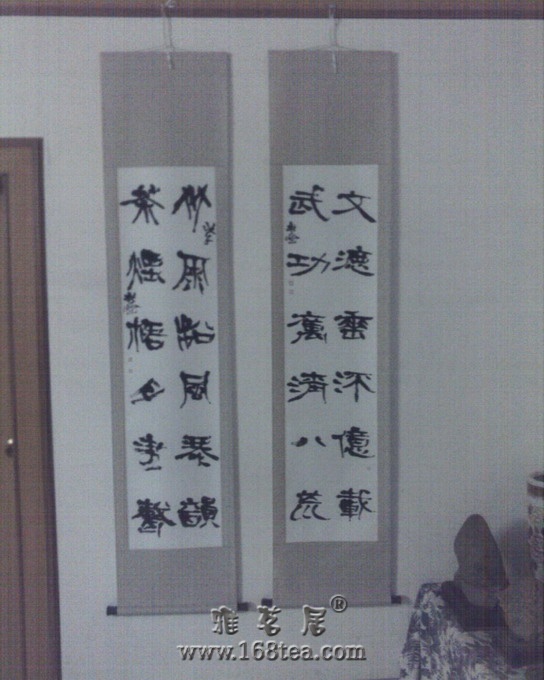 文德垂億載
武功濟八荒
竹雨松風琴韻
茶煙梧月書聲
雅茗居®
www.168tea.com